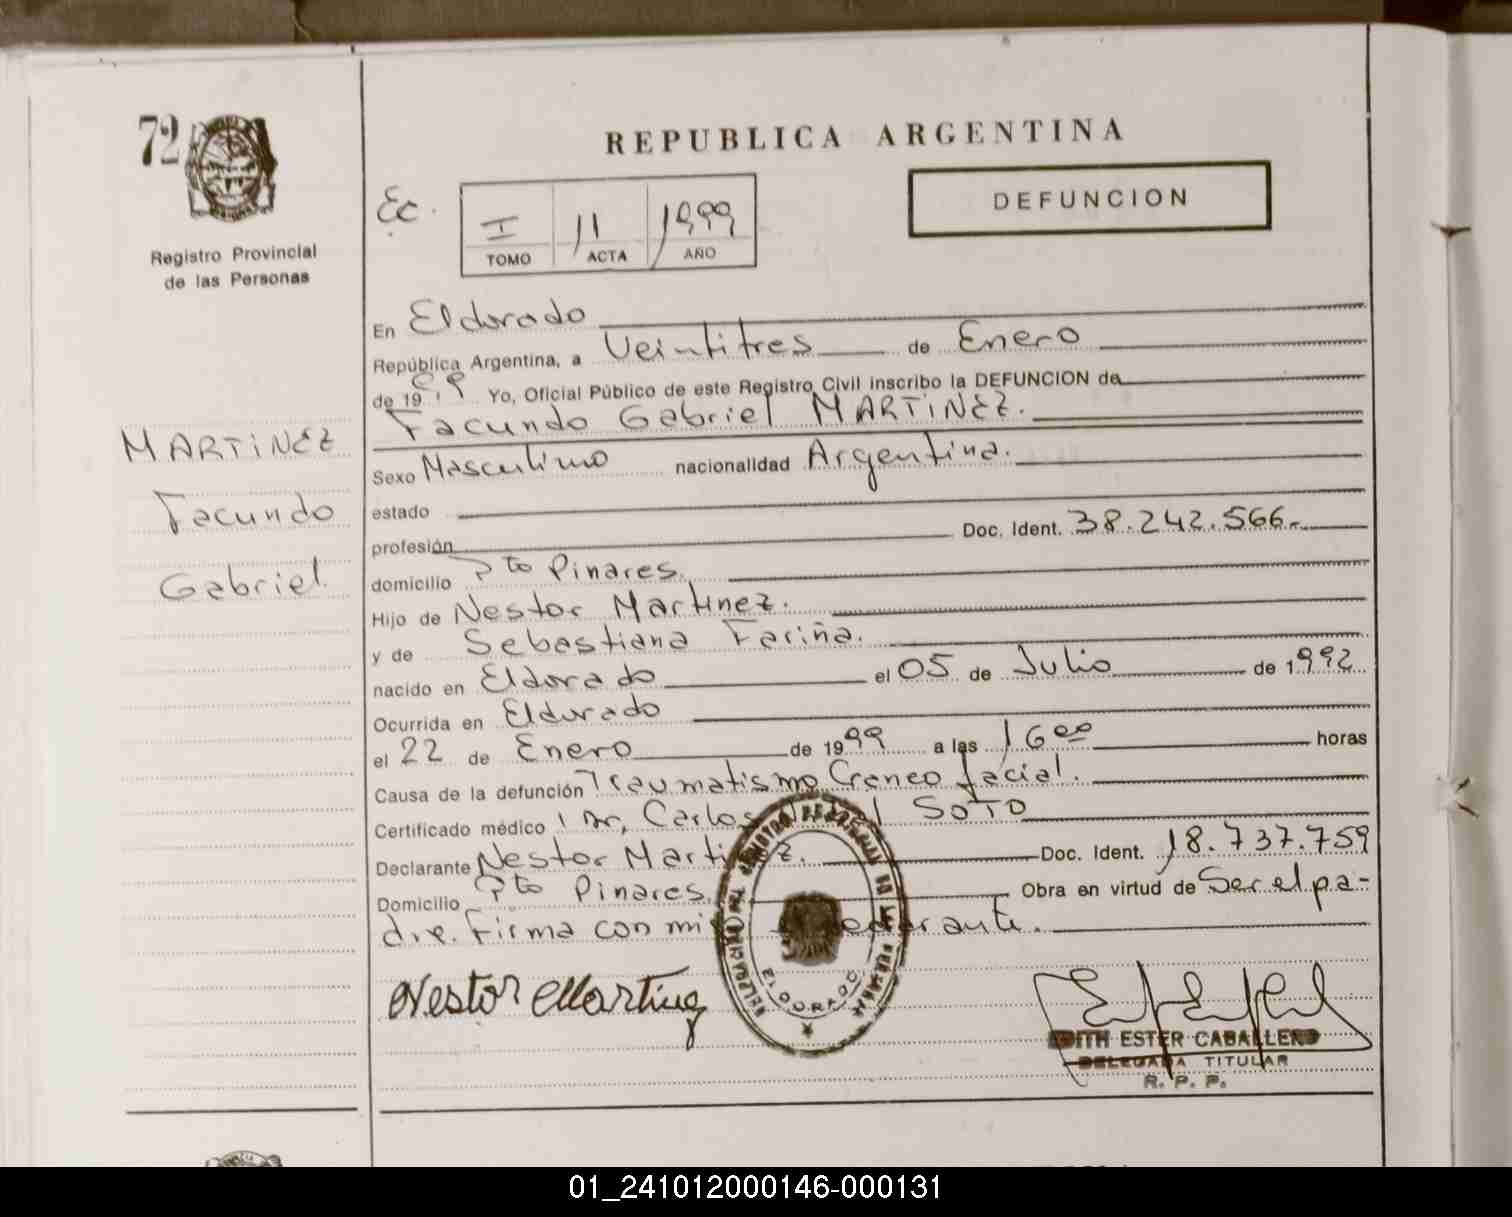 72
REPUBLICA ARGENTINA
DEFUNCION
Registro Provincial
de las Personas
Ec.
I 11 1999
TOMO ACTA AÑO
En Eldorado
República Argentina, a Veintitres de Enero
de 1999 Yo, Oficial Público de este Registro Civil inscribo la DEFUNCION de
Facundo Gabriel MARTINEZ.
MARTINEZ
Facundo
Gabriel
Sexo Masculino nacionalidad Argentina.
estado
profesión Doc. Ident. 38.242.566.-
domicilio Pto Pinares.
Hijo de Nestor Martinez.
y de Sebastiana Fariña.
nacido en Eldorado el 05 de Julio de 1992
Ocurrida en Eldorado
el 22 de Enero de 1999 a las 16 00 horas
Causa de la defunción Traumatismo Craneo facial.
Certificado médico Dr. Carlos SOTO
Declarante Nestor Martinez. Doc. Ident. 18.737.759
Domicilio Pto Pinares. Obra en virtud de Ser el pa-
dre. Firma con mi declarante.
Nestor Martinez
ELDORADO
EDITH ESTER CABALLERO
DELEGADA TITULAR
R. P. P.
01_241012000146-000131